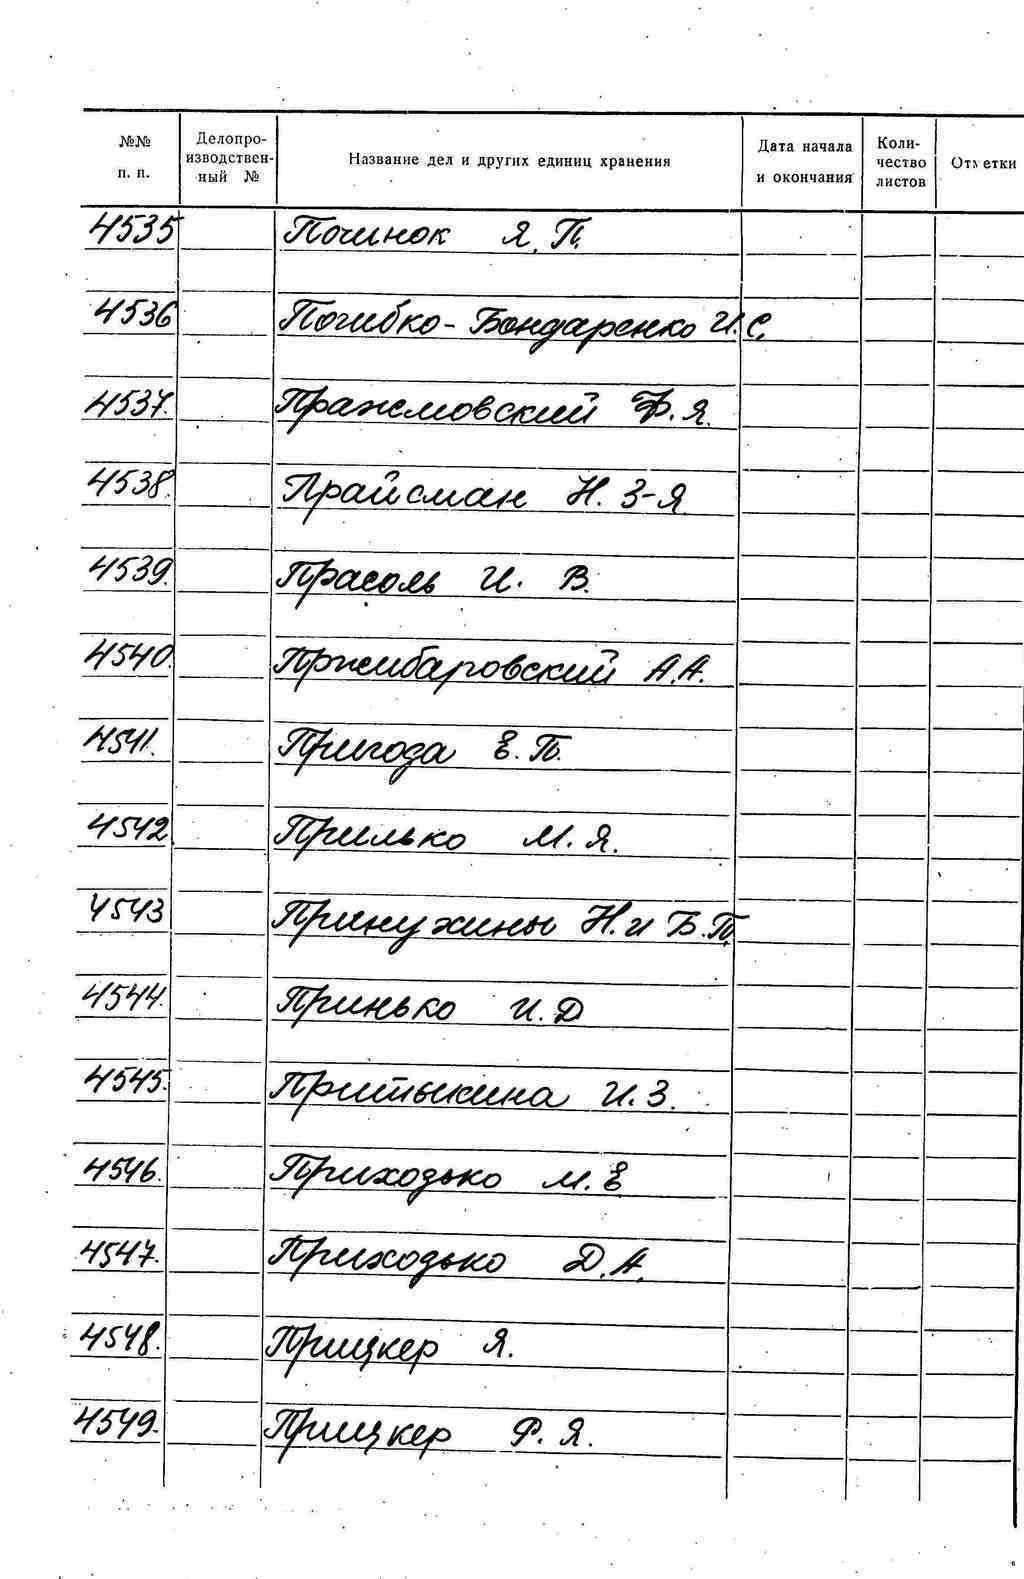 №№ п. п. Делопро- изводствен- ный № Название дел и других единиц хранения Дата начала и окончания Коли- чество листов Отметки
4535 Починок Я. П.
4536 Погибко-Бондаренко И. С.
4537. Пражмовский Ф. Я.
4538. Прайсман Н. З-Я.
4539. Прасоль И. В.
4540. Пржибаровский А. А.
4541. Пригода Е. П.
4542 Прилько М. Я.
4543 Принужины Н. и Б. П.
4544. Принько И. Д
4545. Притыкина И. З.
4546. Приходько М. Е
4547. Приходько Д. А.
4548. Прицкер Я.
4549. Прицкер Ф. Я.